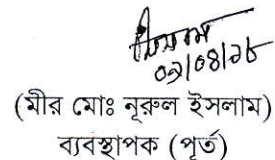 ০৯/০৪/১৮
(মীর মোঃ নূরুল ইসলাম)
ব্যবস্থাপক (পূর্ত)